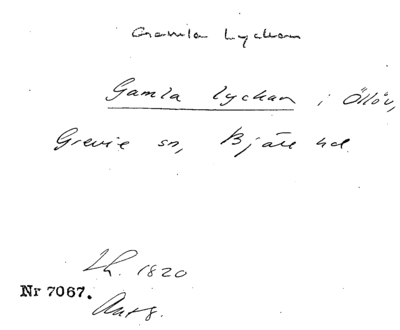 Gamla Lyckan
Gamla Lyckan i Öllöv,
Grevie sn, Bjäre hd.
Lh. 1820
Nr 7067.